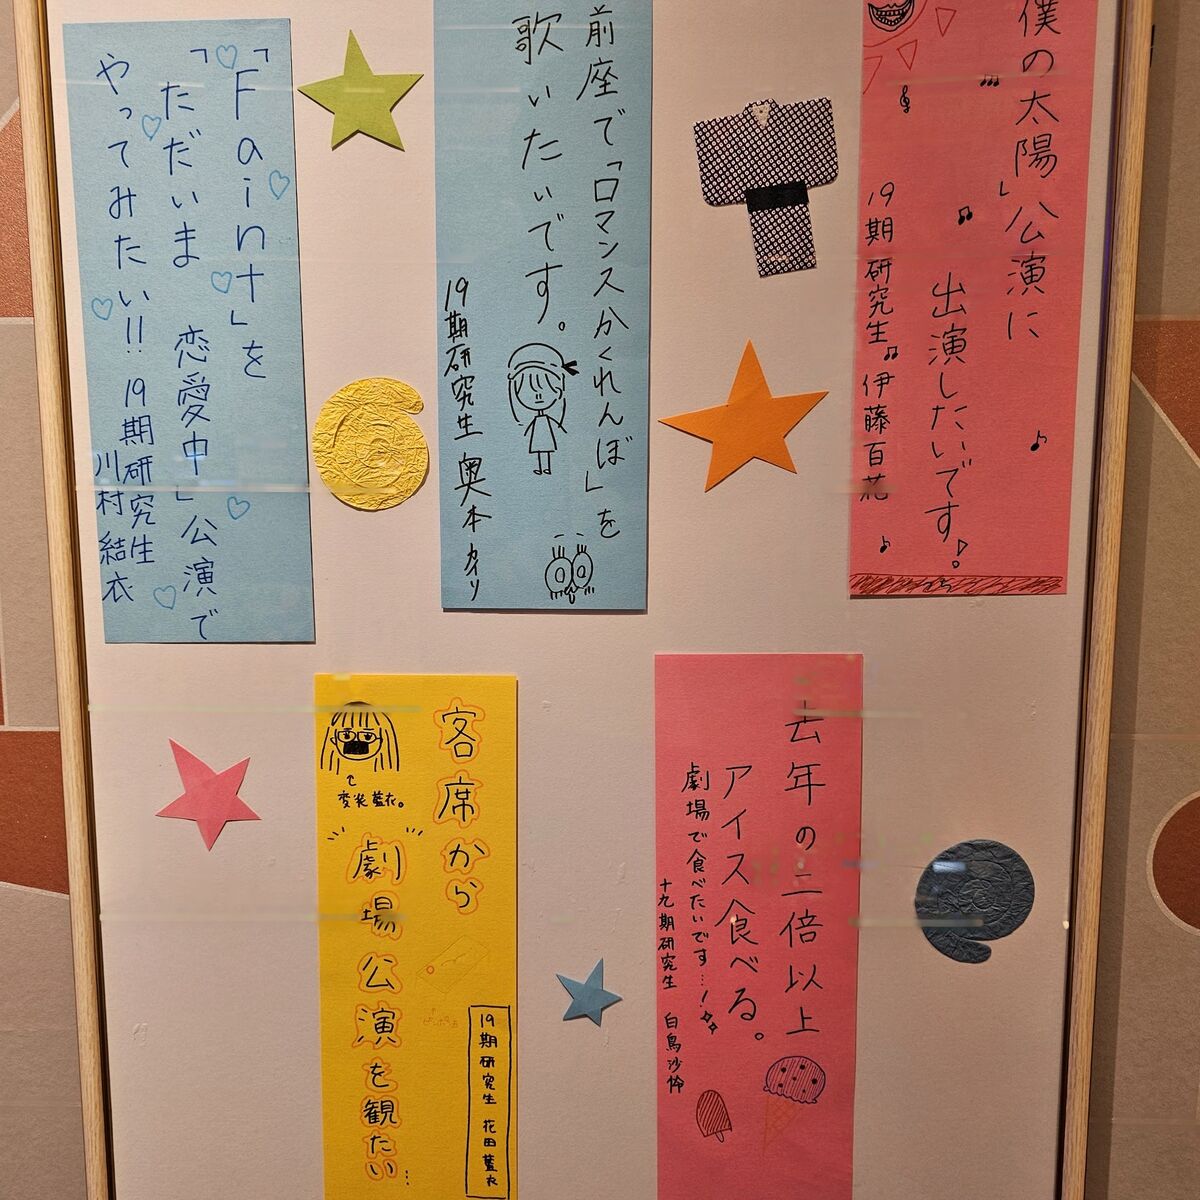 僕の太陽」公演に
出演したいです!。
19期研究生 伊藤百花
前座で「ロマンスかくれんぼ」を
歌いたいです。
19期研究生 奥本カイリ
「Faint」を
「ただいま 恋愛中」公演で
やってみたい!!
19期研究生
川村結衣
去年の二倍以上
アイス食べる。
劇場で食べたいです…!
十九期研究生 白鳥沙怜
客席から
劇場公演を観たい…
変装藍衣。
19期研究生 花田藍衣